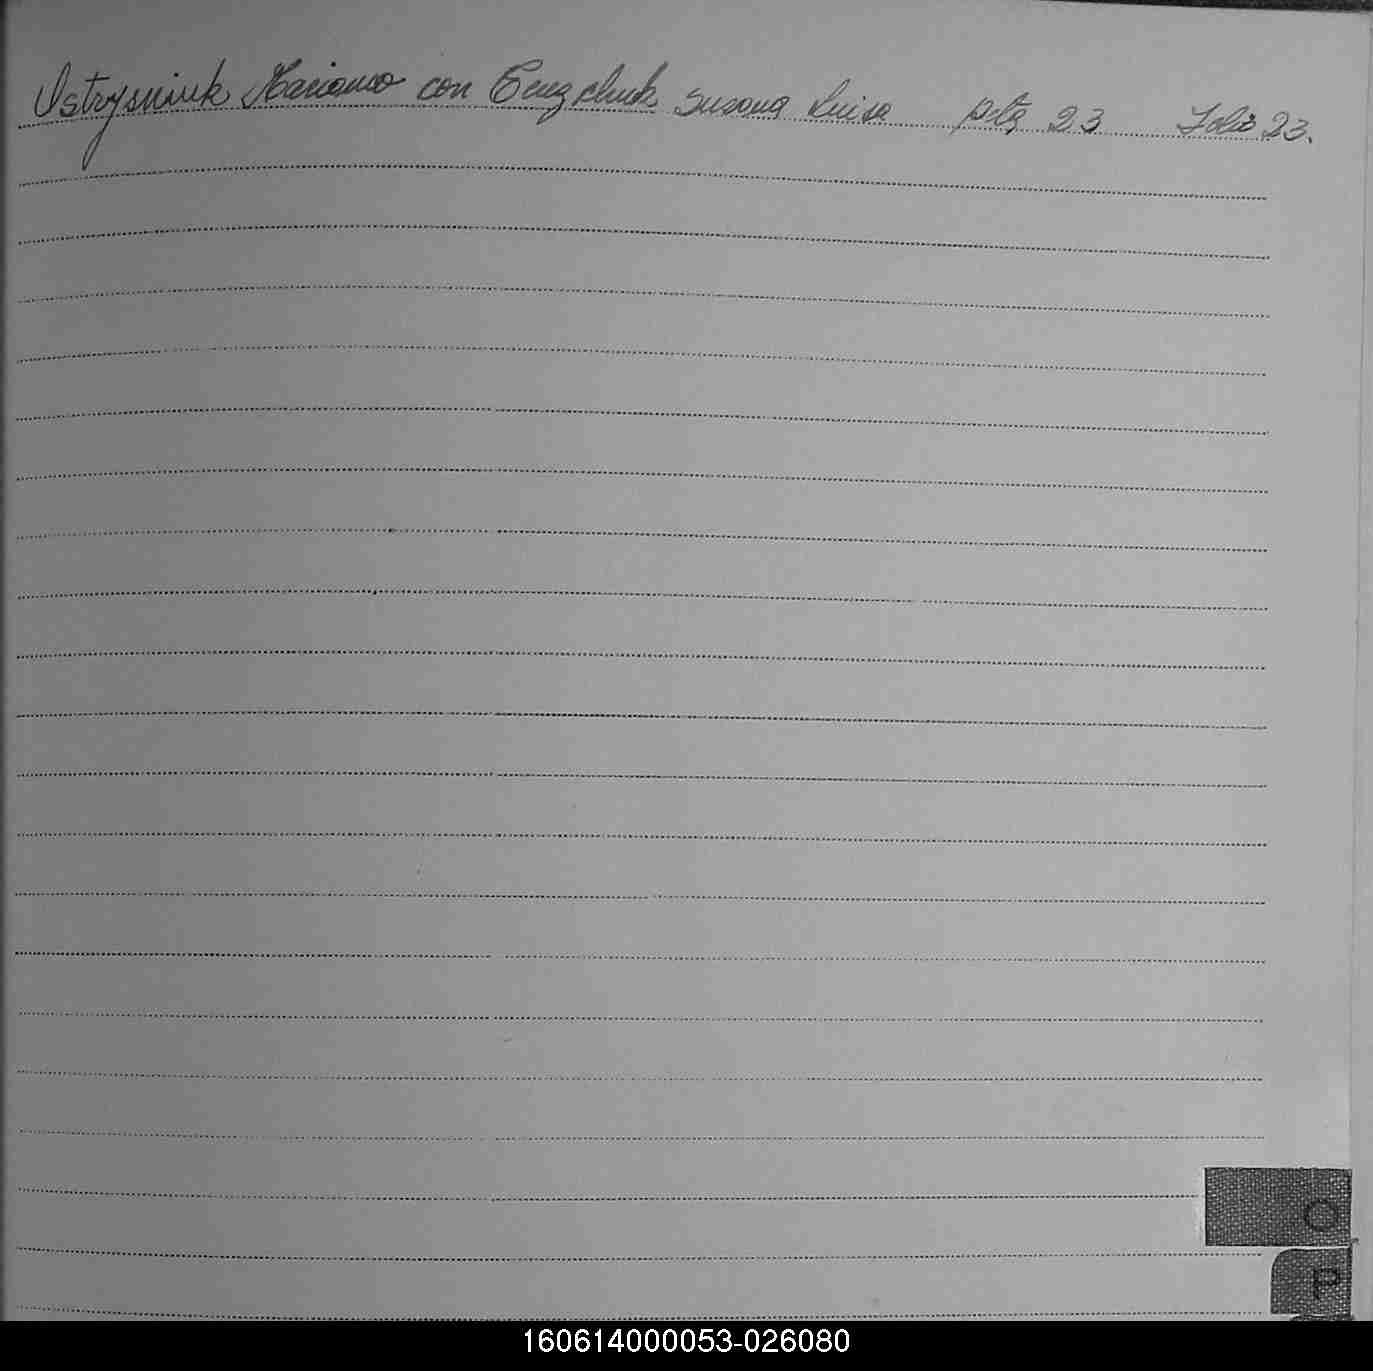 Ostrysniuk Mariano con Susana Luisa Acta 23 Folio 23.
O
P
160614000053-026080